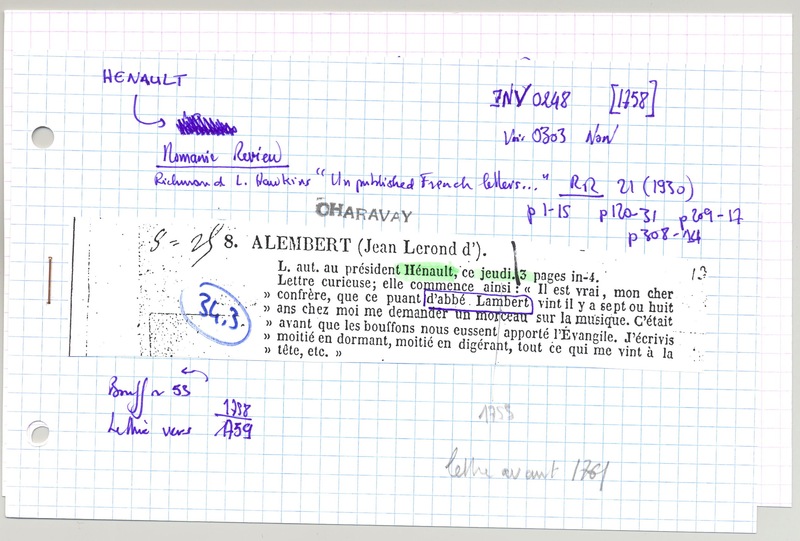 HENAULT
INV 0248 [1758]
Voir 0303 Non
Romanic Review
Richmond L. Hawkins "Unpublished French letters..." RR 21 (1930)
p 1-15 p 120-31 p 209-17
p 308-14
CHARAVAY
8. ALEMBERT (Jean Lerond d').
L. aut. au président Hénault, ce jeudi. 3 pages in-4.
13
Lettre curieuse; elle commence ainsi : « Il est vrai, mon cher
» confrère, que ce puant d'abbé Lambert vint il y a sept ou huit
» ans chez moi me demander un morceau sur la musique. C'était
» avant que les bouffons nous eussent apporté l'Évangile. J'écrivis
» moitié en dormant, moitié en digérant, tout ce qui me vint à la
» tête, etc. »
34.3
Bouff 53
1758
vers 1759
1758
lettre avant 1761